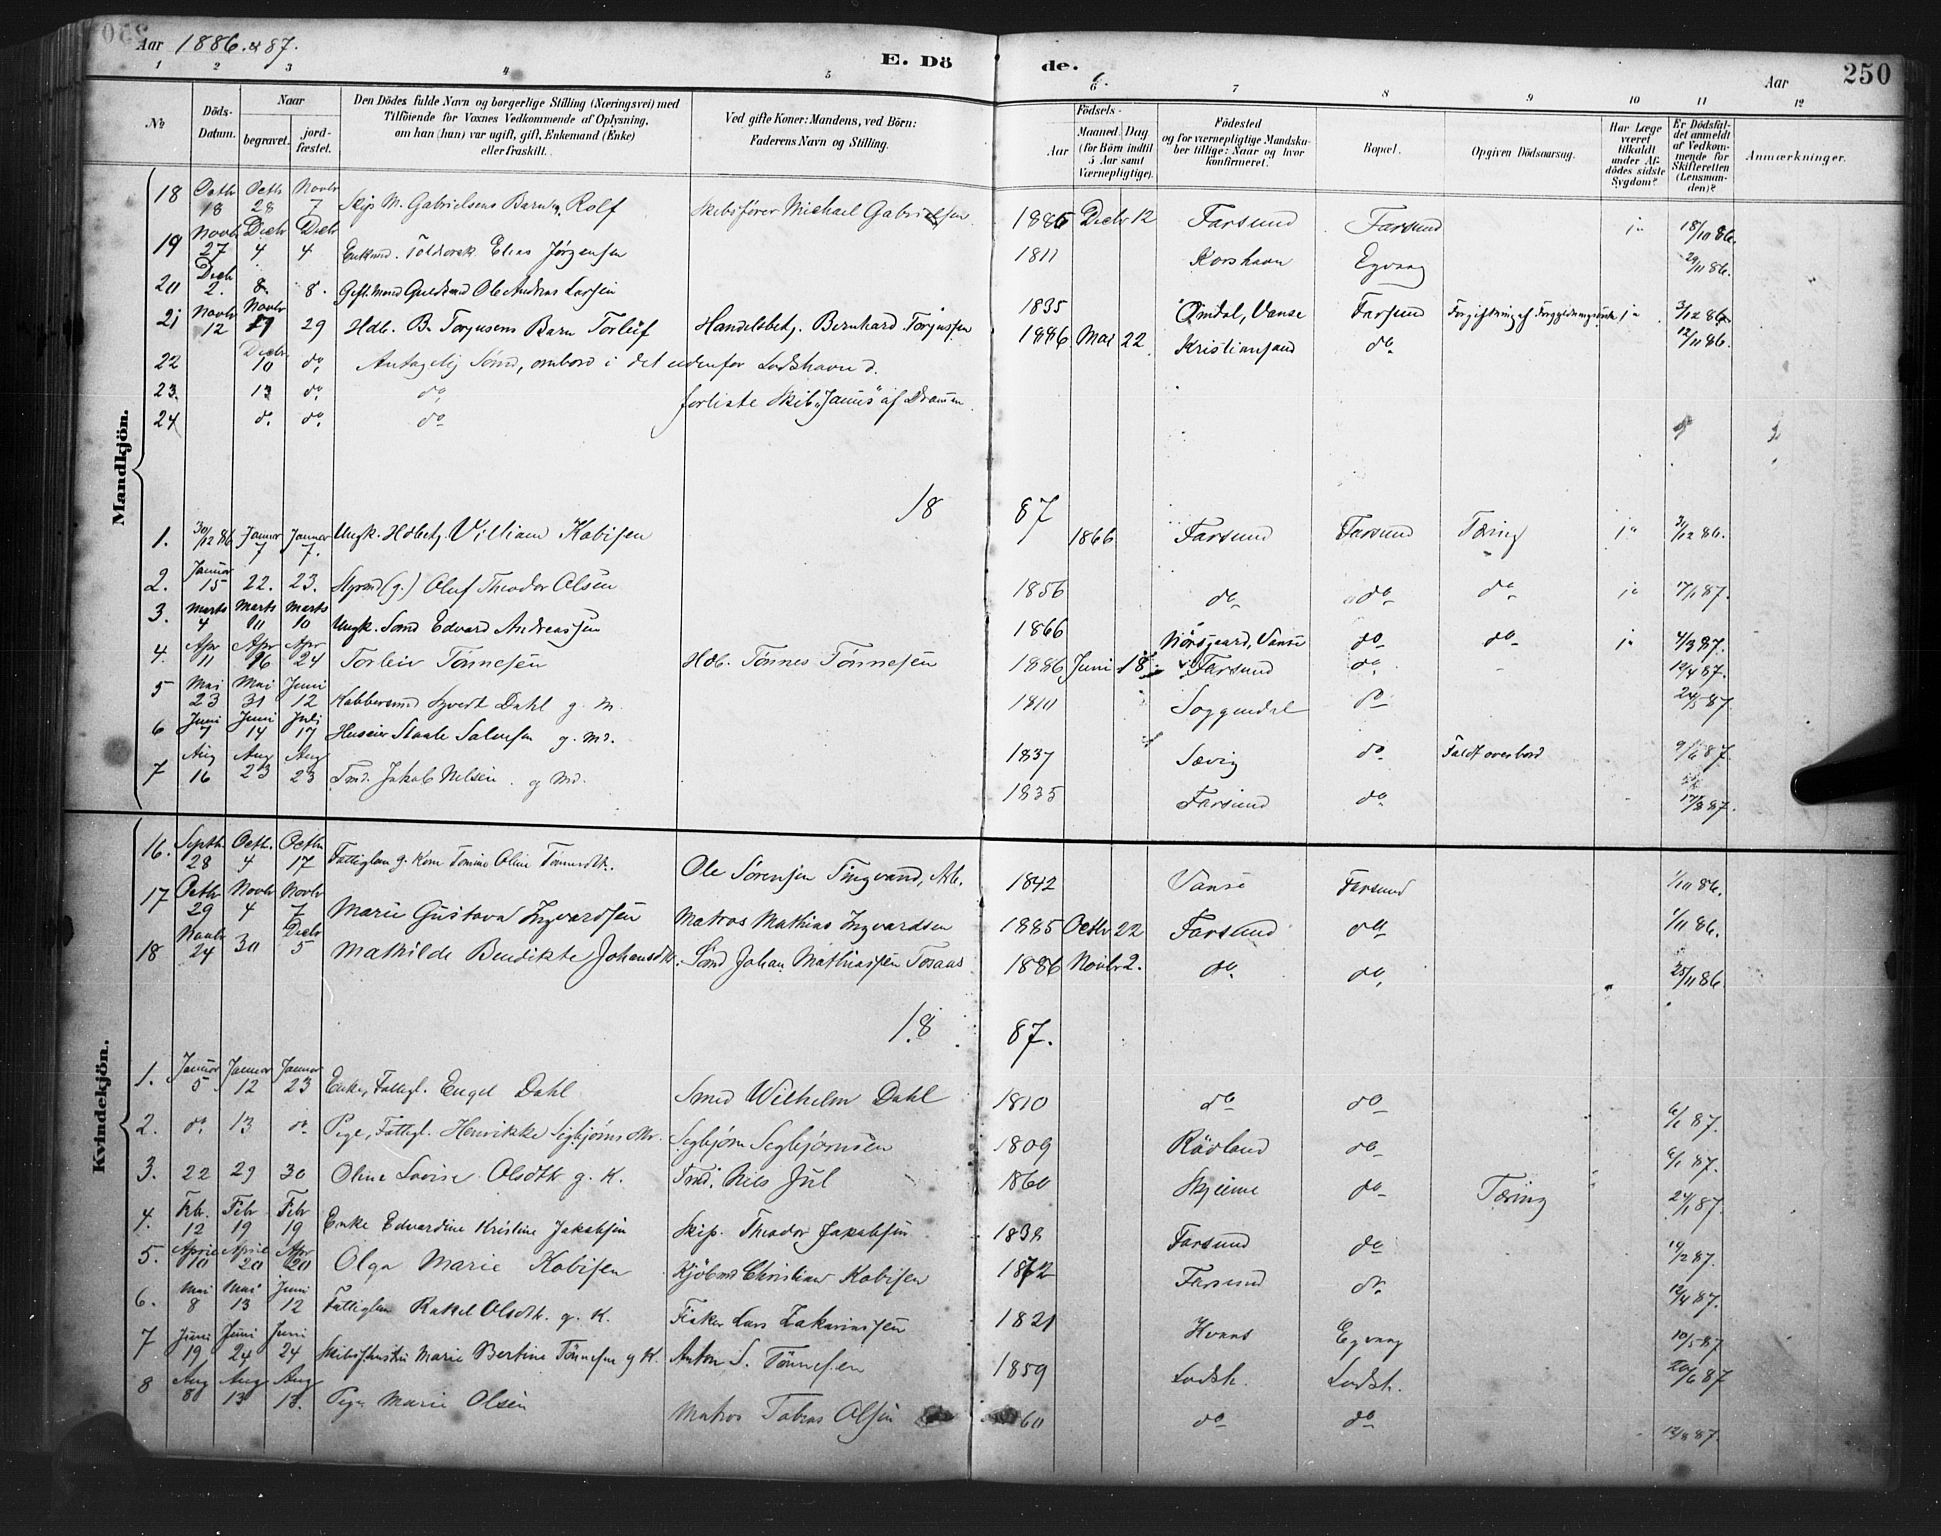 Aar 1886 & 87.
E. Dö de.
Aar 250
1 2 3 4 5 6. 7 8 9 10 11 12
No
Döds-Datum.
Naar begravet. jordfæstet.
Den Dödes fulde Navn og borgerlige Stilling (Næringsvei) med Tilföiende for Voxnes Vedkommende af Oplysning, om han (hun) var ugift, gift, Enkemand (Enke) eller fraskilt.
Ved gifte Koner: Mandens, ved Börn: Faderens Navn og Stilling.
Födsels-
Aar Maaned. Dag. (for Börn indtil 5 Aar samt Værnepligtige).
Födested og for værnepligtige Mandskaber tillige: Naar og hvor konfirmeret.
Bopæl.
Opgiven Dödsaarsag.
Har Læge været tilkaldt under Afdödes sidste Sygdom?
Er Dödsfaldet anmeldt af Vedkommende for Skifteretten (Lensmanden)?
Anmærkninger.
Mandkjön.
18 Octb 18 Octb 28 Novbr 7 Skip. M. Gabrielsens Barn, Rolf Skibsfører Michael Gabrielsen 1885 Decbr 12 Farsund Farsund ja 18/10 86.
19 Novbr 27 Decbr 4 Decbr 4 Enkmd. Elias Jørgensen 1811 Korshavn Egvaag 29/11 86.
20 Decb 2. 8. 8. Gift Mand Guldsmd Ole Andreas Larsen 1835 Omdal, Vanse Farsund 3/12 86
21 Novbr 12 Novbr 29 Hdb. B. Torjusens Barn Torleif Handelsbetj. Bernhard Torjussen 1886 Mai 22 Kristiansand do 12/11 86.
22 Decbr 10 do Antagelig Sømd, ombord i det udenfor Lodshavn d.
23. 13 do do forliste Skib "Janus" af Drammen
24 do. do. do
18 87
1. 30/12 86 Januar 7 Januar 7. Ungk. Hdbetj. William Kabisen 1866 Farsund Farsund Tæring ja 31/12 86.
2. Januar 15 22. 23. Styrmd (g.) Oluf Theodor Olsen 1856 do do do ja 17/1 87.
3. Marts 4 Marts 11 Marts 10 Ungk. Sømd Edvard Andreassen 1866 Vanse do do ja 4/3 87.
4. Apr 11 Apr 16 Apr 24 Torleiv Tønnesen Hdb. Tønnes Tønnesen 1886 Juni 18 Farsund do. 12/4 87.
5 Mai 23 Mai 31 Juni 12 Dahl g. M. 1810 Soggendal do 24/5 87
6 Juni 7 Juni 14 Juli 17 Huseier Staale Salvesen g. Md. 1837 Sævig do. Faldt overbord 9/6 87
7 Aug 16 Aug 23 Aug 23 Tmd. Jakob Nelsen g Md. 1835 Farsund do 17/8 87.
Kvindekjön.
16. Septbr 28 Octb. 4 Octbr 17 Fattiglem g. Kone Tomine Oline Tønnesdtr. Ole Sørensen Tingvand, Arb. 1842 Vanse Farsund 1/10 86.
17 Octbr 29 Novbr 4 Novbr 7 Marie Gustava Ingvardsen Matros Mathias Ingvardsen 1885 Octbr 22 Farsund do 1/11 86.
18 Novbr 24 30 Decbr 5 Mathilde Bendikte Johansdtr. Sømd Johan Mathiassen Tosaas 1886 Novbr 2. do. do, 25/11 86.
18 87.
1. Januar 5 Januar 12 Januar 23 Enke, Fattigl. Engel Dahl Smed Wilhelm Dahl 1810 do do 6/1 87.
2. do. 13 do. Pige, Fattigl. Henrikke Segbjørnsdtr. Segbjørn Segbjørnsen 1809 Rävland do 6/1 87.
3. 22 29 30 Oline Lovise Olsdtr g. K. Tmd. Nils Jul 1860 Skjeime do Tæring 24/1 87.
4. Febr. 12 Febr 19 Febr 19 Enke Edvardine Kristine Jakobsen Skip. Theodor Jakobsen 1838 Farsund do 14/2 87.
5. April 10 April 20 Apr 20 Olga Marie Kabisen Kjöbmd Christian Kabisen 1872 Farsund do. 12/4 87.
6. Mai 8 Mai 13 Juni 12 Fattiglem Rakel Olsdtr. g. K. Fisker Lars Zakariassen 1821 Hvaas Egvaag 10/5 87
7 Juni 19 Juni 24 Juni 24 Marie Bertine Tønnesen g K. Anton S. Tønnesen 1859 Lodsh. Lodsh. 20/6 87
8 Aug 8 Aug 13 Aug 13. Pige Marie Olsen Matros Tobias Olsen 60 do do 12/8 87.